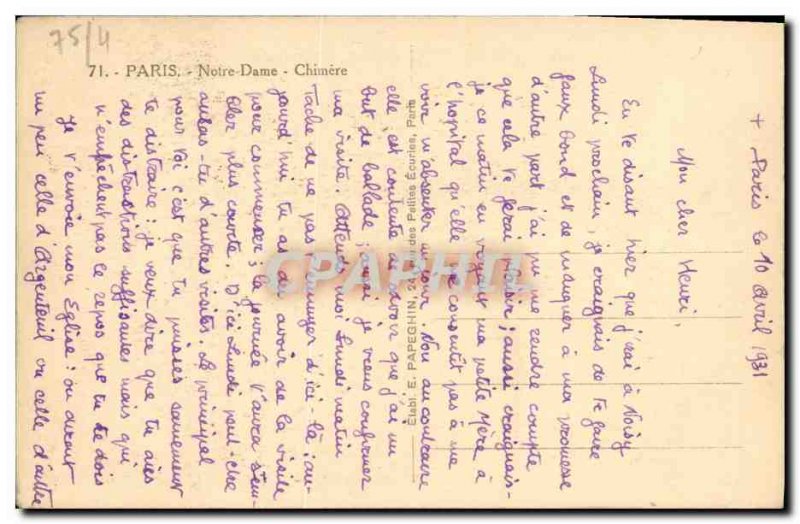 75/4
71. - PARIS. - Notre-Dame - Chimère
Établ. E. PAPEGHIN, des Petites Écuries, Paris
CPAPHIL
+ Paris le 10 avril 1931
Mon cher Henri,
En te disant hier que j'irai à Noisy
Lundi prochain, je craignais de te faire
faux bond et de manquer à ma promesse
d'autre part j'ai pu me rendre compte
que cela te ferait plaisir ; aussi craignais-
je ce matin en voyant ma petite Mère à
l'hôpital qu'elle ne consentît pas à me
voir m'absenter un jour. Non au contraire
elle est contente de savoir que j'ai un
but de ballade ; aussi je viens confirmer
ma visite. Attends moi Lundi matin
Tâche de ne pas t'ennuyer d'ici-là ; au-
jourd'hui tu as dû avoir de la visite
pour commencer ; la journée t'aura sem-
blée plus courte. D'ici Lundi peut-être
auras-tu d'autres visites. Le principal
pour toi c'est que tu puisses sainement
te distraire ; je veux dire que tu aies
des distractions suffisantes mais qui
n'empêchent pas le repos que tu dois
Je t'envoie mon Eglise : on dirait
un peu celle d'Argenteuil ou celle d'autre